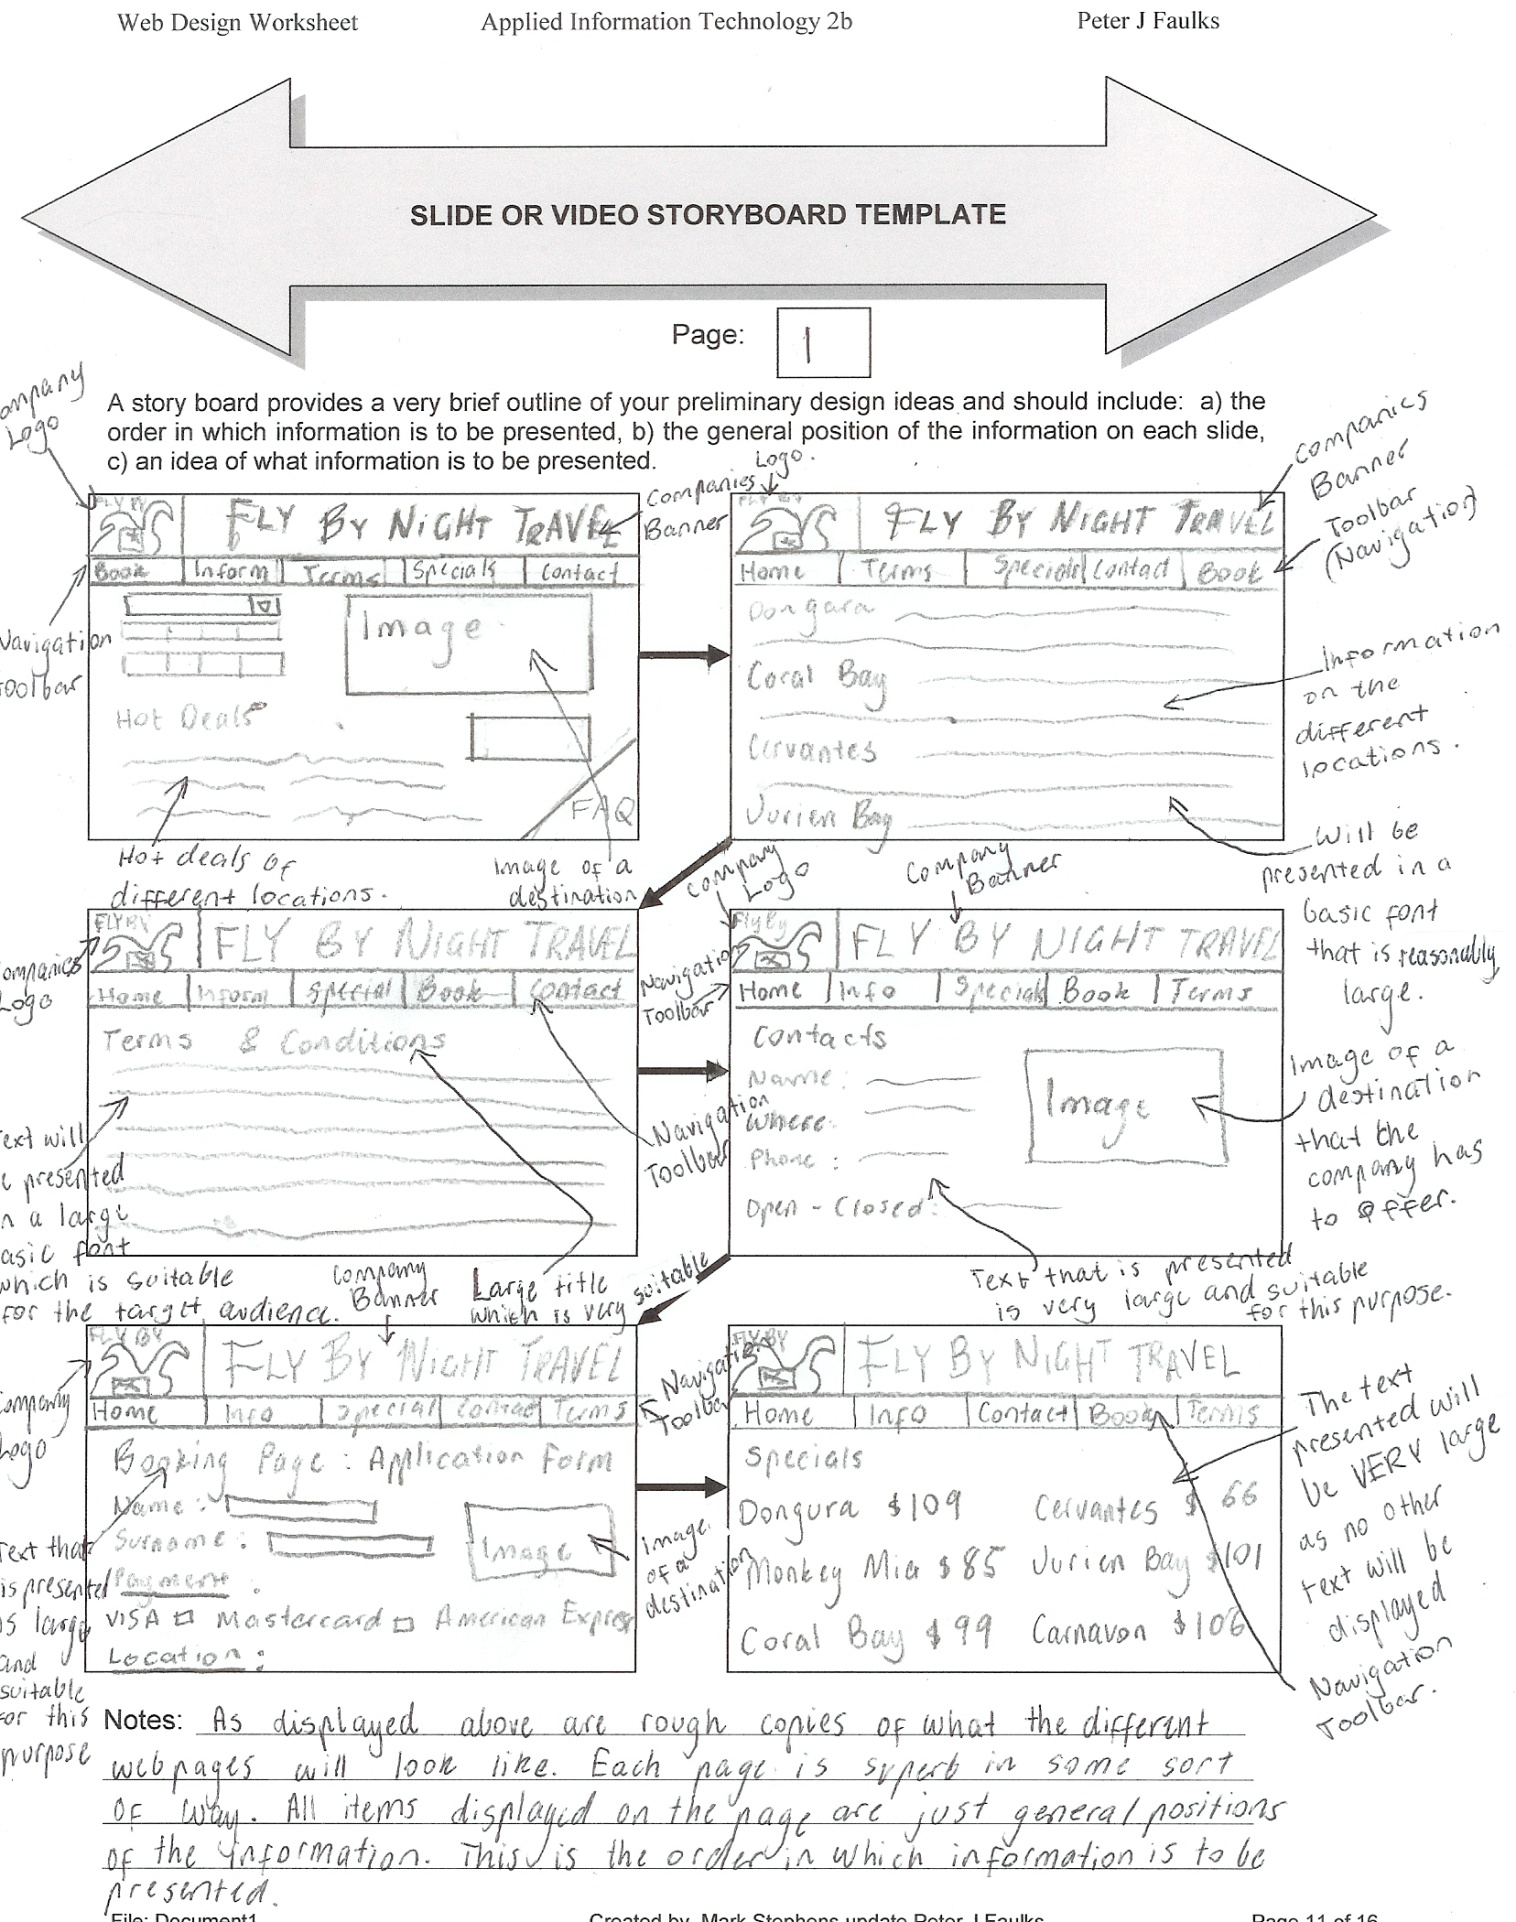 Web Design Worksheet Applied Information Technology 2b Peter J Faulks
SLIDE OR VIDEO STORYBOARD TEMPLATE
Page: 1
A story board provides a very brief outline of your preliminary design ideas and should include: a) the
order in which information is to be presented, b) the general position of the information on each slide,
c) an idea of what information is to be presented.
Logo
Companies
Banner
Logo.
Companies
Banner
Toolbar
(Navigation)
FLY BY
FLY BY NIGHT TRAVEL
Book Inform Terms Specials Contact
Image
Hot Deals
FAQ
Navigation
Toolbar
Hot deals of
different locations.
Image of a
destination
FLY BY NIGHT TRAVEL
Home Terms Specials Contact Book
Dongara
Coral Bay
Cervantes
Jurien Bay
Information
on the
different
locations.
Will be
presented in a
basic font
that is reasonably
large.
Company
Logo
Company
Banner
FLY BY
FLY BY NIGHT TRAVEL
Home Inform Special Book Contact
Terms & Conditions
Companies
Logo
Navigation
Toolbar
Text will
be presented
in a large
basic font
which is suitable
for the target audience.
Large title
which is very suitable
Navigation
Toolbar
Fly By
FLY BY NIGHT TRAVEL
Home Info Specials Book Terms
Contacts
Name:
Where:
Phone:
Open - Closed:
Image
Image of a
destination
that the
company has
to offer.
Text that is presented
is very large and suitable
for this purpose.
Company
Banner
FLY BY
FLY BY NIGHT TRAVEL
Home Info Special Contact Terms
Booking Page: Application Form
Name:
Surname:
Payment:
VISA Mastercard American Express
Location:
Image
Company
Logo
Text that
is presented
is large
and
suitable
for this
purpose
Navigation
Toolbar
Image
of a
destination
FLY BY
FLY BY NIGHT TRAVEL
Home Info Contact Book Terms
Specials
Dongura $109 Cervantes $66
Monkey Mia $85 Jurien Bay $101
Coral Bay $99 Carnavon $106
The text
presented will
be VERY large
as no other
text will be
displayed
Navigation
Toolbar.
Notes: As displayed above are rough copies of what the different
webpages will look like. Each page is superb in some sort
of way. All items displayed on the page are just general positions
of the information. This is the order in which information is to be
presented.
File: Document1 Created by Mark Stephens update Peter J Faulks Page 11 of 16